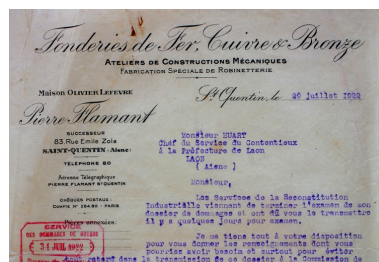 Fonderies de Fer, Cuivre & Bronze
ATELIERS DE CONSTRUCTIONS MÉCANIQUES
FABRICATION SPÉCIALE DE ROBINETTERIE
Maison OLIVIER LEFEVRE
St Quentin, le 29 juillet 1922
Pierre Flamant
SUCCESSEUR
83, Rue Emile Zola
SAINT-QUENTIN (Aisne)
TÉLÉPHONE 80
Adresse Télégraphique
PIERRE FLAMANT ST QUENTIN
CHÈQUES POSTAUX :
COMPTE N° 264.89 - PARIS
Monsieur HUART
Chef du Service du Contentieux
à la Préfecture de Laon
LAON
( Aisne )
Monsieur,
Les Services de la Reconstitution
Industrielle viennent de terminer l'examen de mon
dossier de dommages et ont dû vous le transmettre
il y a quelques jours pour examen.
Je me tiens tout à votre disposition
pour vous donner les renseignements dont vous
pourriez avoir besoin et surtout pour éviter
retard dans la transmission de ce dossier à la Commission de
SERVICE
DES DOMMAGES DE GUERRE
31 JUIL 1922